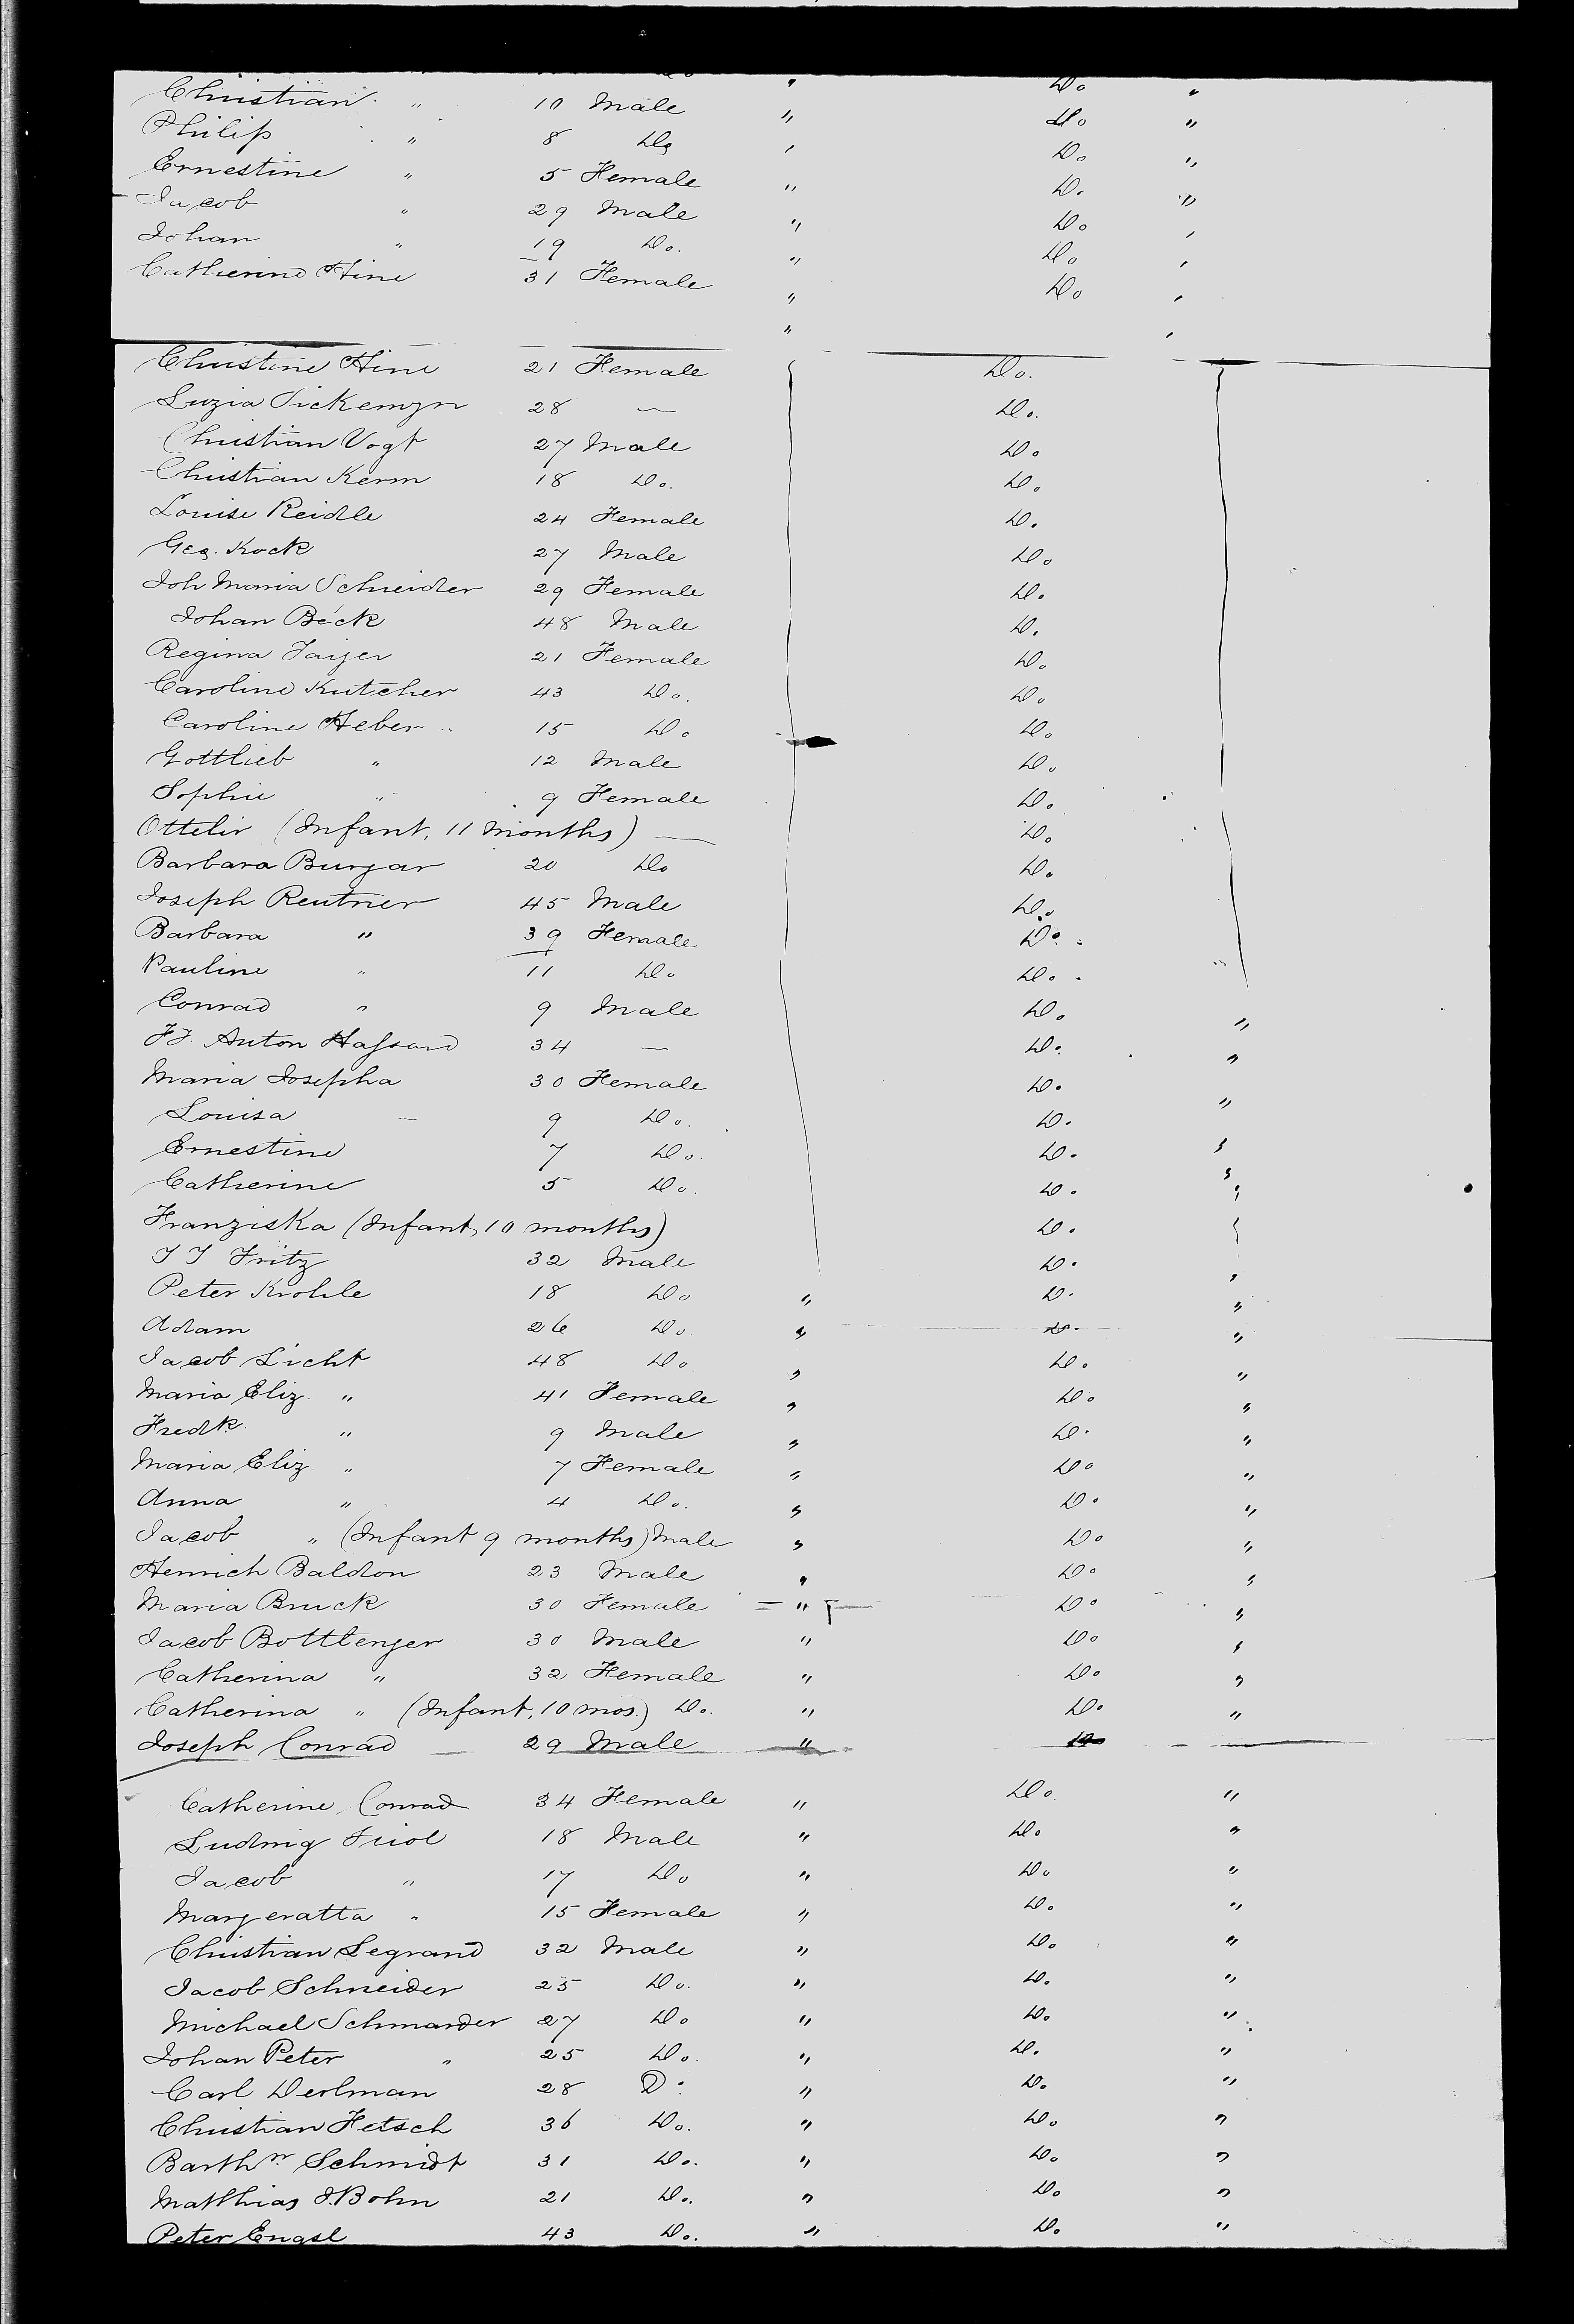 Christian " 10 Male " Do "
Philip " 8 Do " Do "
Ernestine " 5 Female " Do "
Jacob " 29 Male " Do "
Johan " 19 Do. " Do "
Catherine Hine 31 Female " Do "
Christine Hine 21 Female Do.
Luzia 28 — Do.
Christian Vogt 27 Male Do
Christian Kerm 18 Do. Do.
Louise Reidle 24 Female Do.
Geo. Kock 27 Male Do
Joh Maria Schneider 29 Female Do.
Johan Beck 48 Male Do.
Regina Jaiser 21 Female Do.
Caroline Kutcher 43 Do. Do
Caroline Heber 15 Do Do
Gottlieb " 12 Male Do.
Sophie " 9 Female Do.
Ottelir (Infant, 11 Months) — Do.
Barbara Burgar 20 Do Do.
Joseph Reutner 45 Male Do.
Barbara " 39 Female Do.
Pauline " 11 Do Do.
Conrad " 9 Male Do. "
Anton 34 — Do. "
Maria Josepha 30 Female Do. "
Louisa — 9 Do. Do. "
Ernestine 7 Do. Do. "
Catherine 5 Do. Do. "
Franziska (Infant, 10 months) Do.
Fritz 32 Male Do. "
Peter Krohle 18 Do " Do. "
Adam 26 Do. " Do. "
Jacob Licht 48 Do " Do. "
Maria Eliz. " 41 Female " Do "
Fredk. " 9 Male " Do. "
Maria Eliz " 7 Female " Do "
Anna " 4 Do. " Do. "
Jacob " (Infant 9 months) Male " Do "
Henrich Baldon 23 Male " Do "
Maria Bruck 30 Female " Do "
Jacob Bottlenger 30 Male " Do "
Catherina " 32 Female " Do. "
Catherina " (Infant, 10 mos.) Do. " Do. "
Joseph Conrad 29 Male " Do
Catherine Conrad 34 Female " Do. "
Ludwig Triol 18 Male " Do. "
Jacob " 17 Do " Do "
Margeratta " 15 Female " Do. "
Christian Legrand 32 Male " Do "
Jacob Schneider 25 Do. " Do. "
Michael Schmarder 27 Do " Do. "
Johan Peter " 25 Do. " Do. "
Carl Derlman 28 D. " Do. "
Christian Fetsch 36 Do. " Do "
Barthr Schmidt 31 Do. " Do "
Matthias J. Bohn 21 Do. " Do "
Peter Engel 43 Do. " Do "